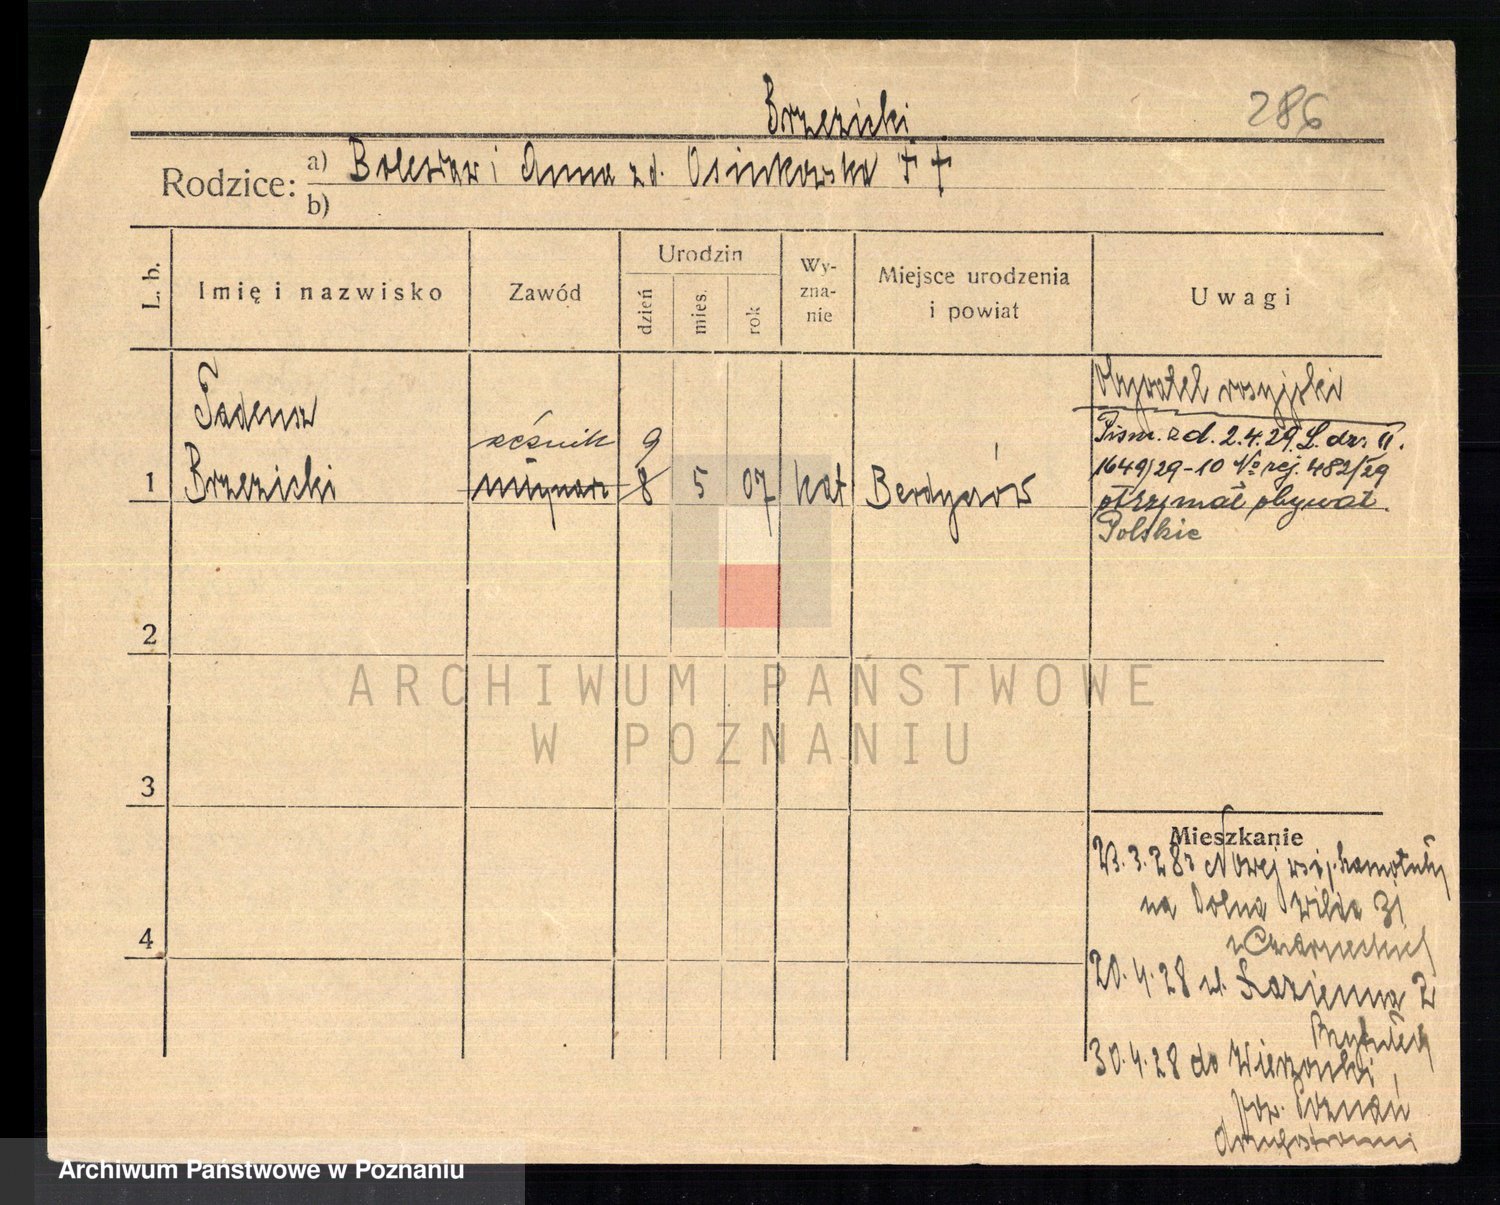 Brzezicki
286
Rodzice: a) Bolesław i Anna z d. Osinkowska ++
b)
L. b.
Imię i nazwisko
Zawód
Urodzin
dzień
mies.
rok
Wy-
zna-
nie
Miejsce urodzenia
i powiat
Uwagi
Tadeusz
Brzezicki
1
młynarz
8 9
5
07
kat
Berdyczów
Obywatel rosyjski
Pism. z d. 2.4.29 L. dz. II.
1649/29-10 No rej. 482/29
otrzymał obywat.
Polskie
2
3
4
Mieszkanie
23.3.28 z Nowej wsi p. Szamotuły
na Dolna Wilda 31
u Czarneckich
20.4.28 ul. Łazienna 2
30.4.28 do Wierzonki
pow. Poznań
ARCHIWUM PAŃSTWOWE
W POZNANIU
Archiwum Państwowe w Poznaniu